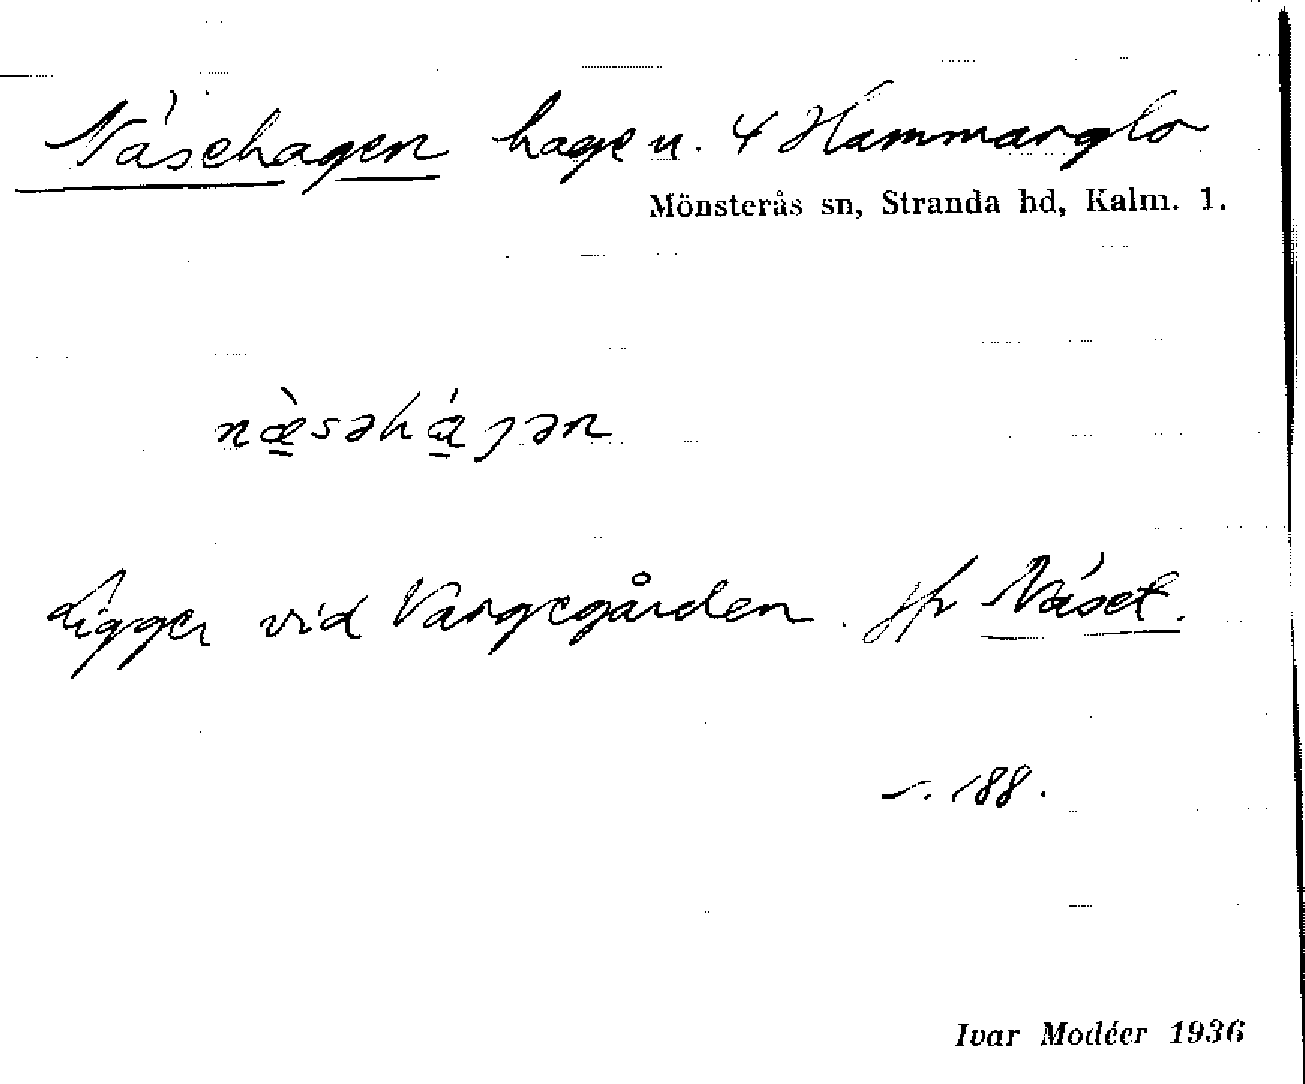 Näsehagen hage u. 4 Hammarglo
Mönsterås sn, Stranda hd, Kalm. l.
næ̀səhɑ́gən
Ligger vid Vargegården. Jfr Näset.
s. 188.
Ivar Modéer 1936